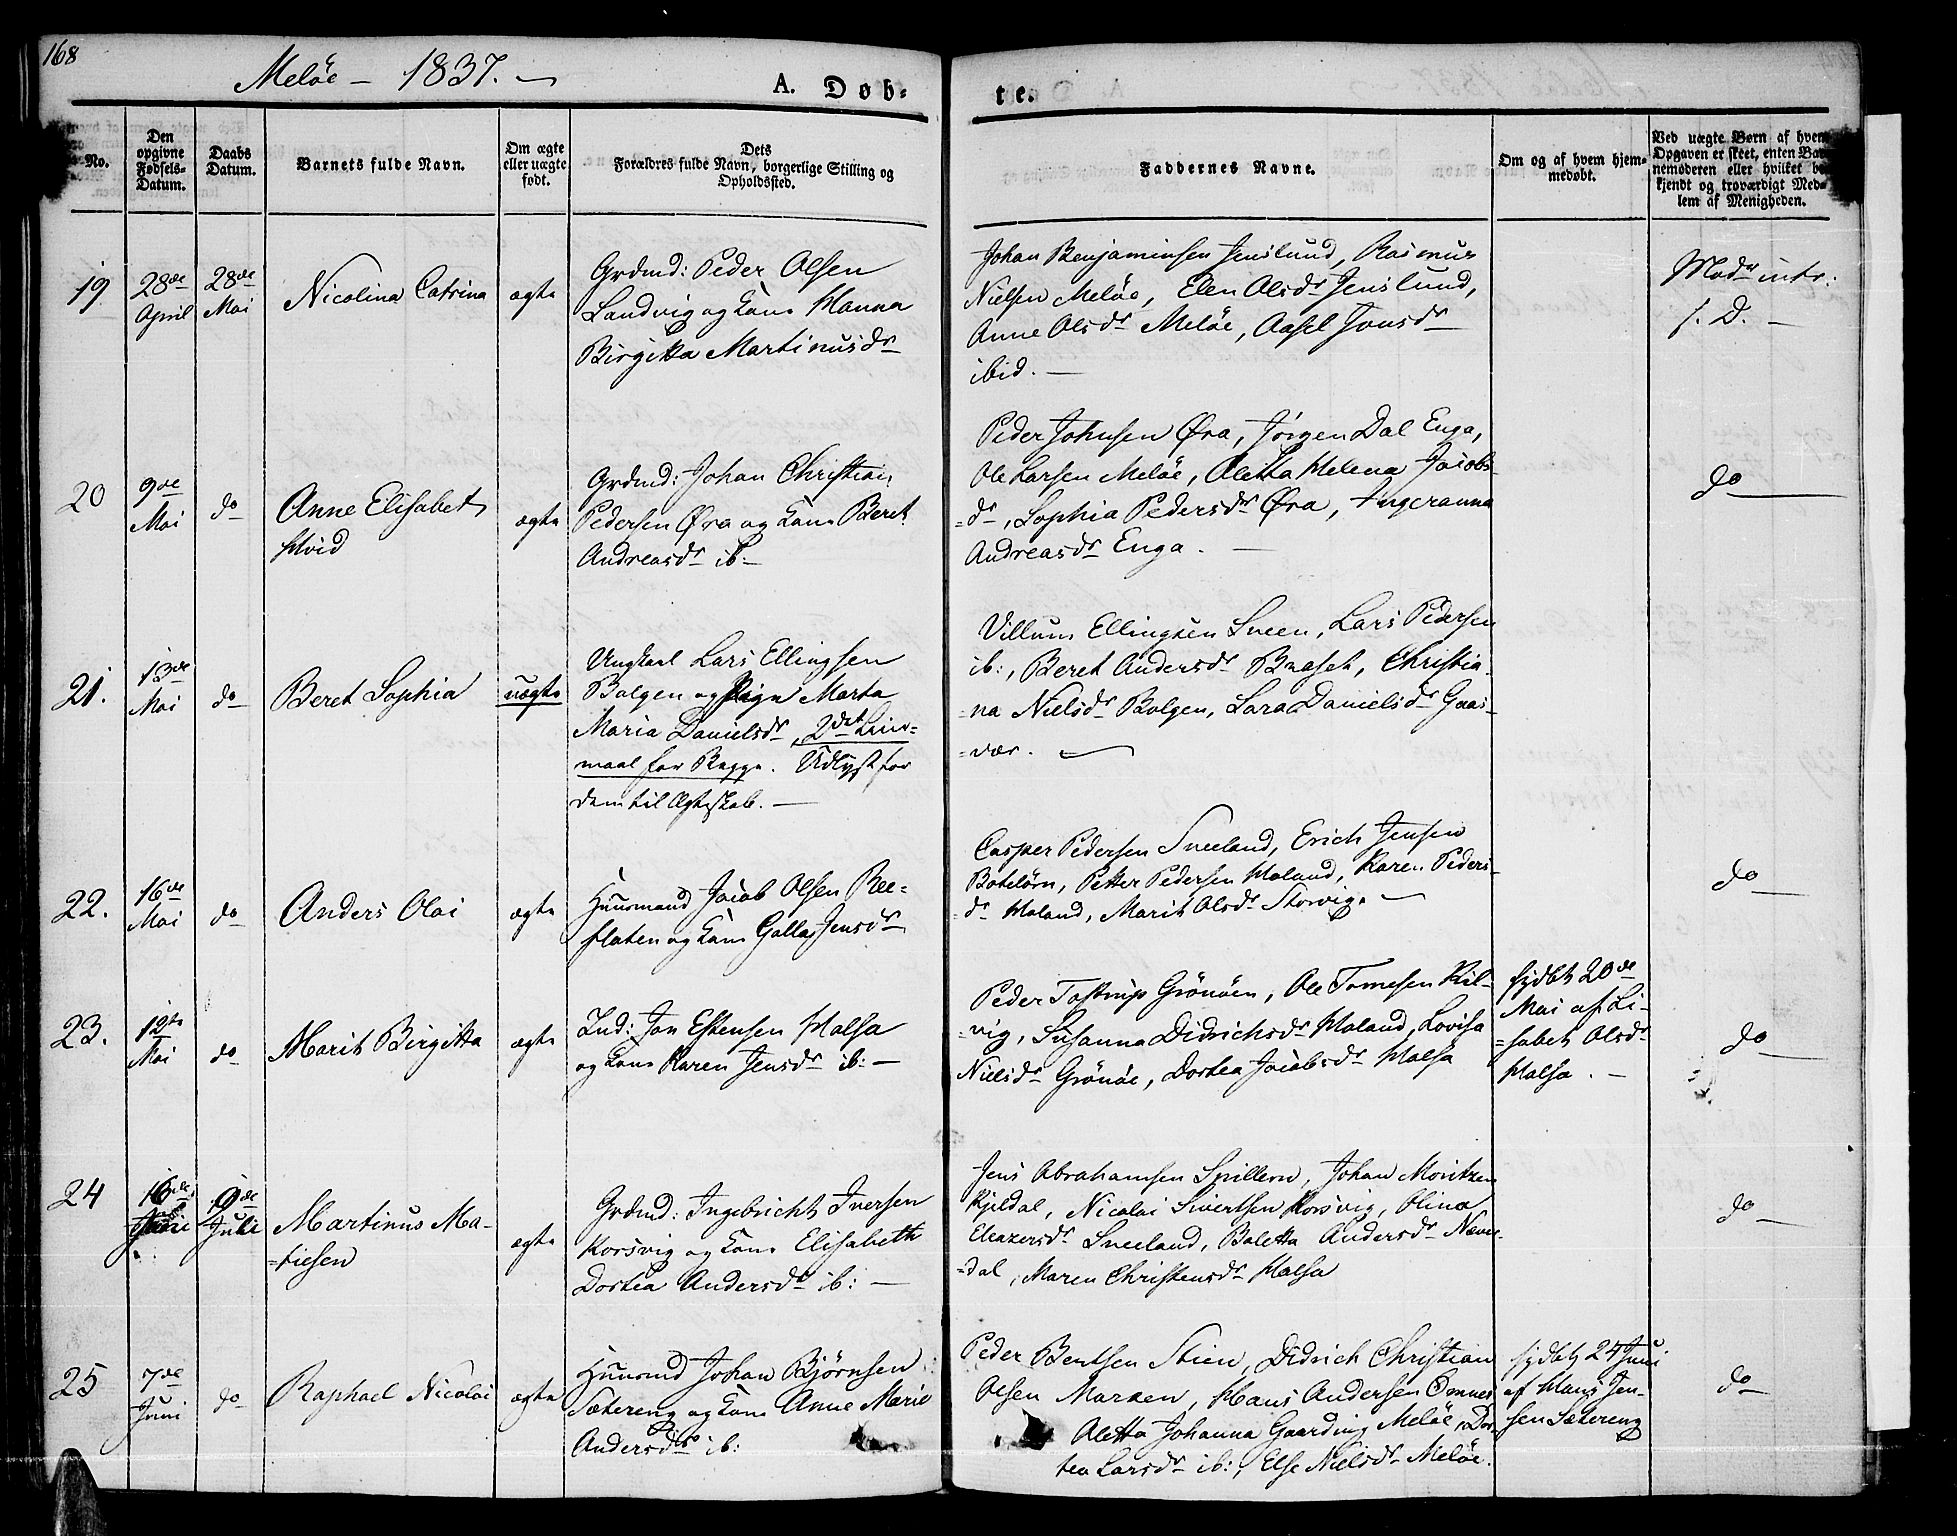 168
Meløe – 1837. –
A. Døb-
te.
No.
Den
opgivne
Fødsels-
Datum.
Daabs
Datum.
Barnets fulde Navn.
Om ægte
eller uægte
født.
Dets
Forældres fulde Navn, borgerlige Stilling og
Opholdssted.
Faddernes Navne.
Om og af hvem hjem-
medøbt.
Ved uægte Børn af hvem
Opgaven er skeet, enten Bar
nemoderen eller hvilket be
kjendt og troværdigt Med-
lem af Menigheden.
19.
28de
April
28de
Mai
Nicolina Catrina
ægte
Grdmd: Peder Olsen
Sandvig og Kone Hanna
Birgitta Martinusdr
Johan Benjaminsen Jenslund, Rasmus
Nielsen Meløe, Elen Olsdr Jenslund,
Anne Olsdr Meløe, Aasel Jonsdr
ibid. –
Modr intr:
s. D. –
20
9de
Mai
do
Anne Elisabet
Hvid
ægte
Grdmd: Johan Christian
Pedersen Øra og Kone Beret
Andreasdr ib. –
Peder Johnsen Øra, Jörgen Dal Enga,
Ole Larsen Meløe, Aletta Helena Jacobs-
=dr, Sophia Pedersdr Øra, Ingeranna
Andreasdr Enga. –
do
21.
13de
Mai
do
Beret Sophia
uægte
Ungkarl Lars Ellingsen
Bolgen og Pige Marta
Maria Danielsdr, 2det Leier=
maal for Begge. Udlyst for
dem til Ægteskab. –
Villum Ellingsen Sneen, Lars Pedersen
ib:, Beret Andersdr Braset, Christia-
=na Nielsdr Bolgen, Lara Danielsdr Gaas-
=vær. –
22.
16de
Mai
do
Anders Olai
ægte
Huusmand Jacob Olsen Ree=
flaten og Kone Golla Jensdr
Casper Pedersen Sneeland, Erich Jensen
Boteløen, Petter Pedersen Haland, Karen Peders-
dr Haland, Marit Olsdr Storvig. –
do
23.
12te
Mai
do
Marit Birgitta
ægte
Ind: Jon Estensen Halsa
og Kone Karen Jensdr ib: –
Peder Tostrup Grönöen, Ole Tomesen Kil-
=vig, Susanna Didrichsdr Haland, Lovisa
Nielsdr Grönöe, Dortea Jacobsdr Halsa
hjdbt 20de
Mai af Li-
=sabet Olsdr
Halsa. –
do
24
16de
9de
Juli
Martinus Ma-
=tiesen
ægte
Grdmd: Ingebricht Iversen
Korsvig og Kone Elisabeth
Dortea Andersdr ib: –
Jens Abrahamsen Spilleren, Johan Moritzen
Kjeldal, Nicolai Sivertsen Korsvig, Olina
Eleazersdr Sneeland, Baletta Andersdr Næver-
=dal, Maren Christensdr Halsa
do
25
7de
Juni
do
Raphael Nicolai
ægte
Huusmd Johan Bjørnsen
Sætereng og Kone Anne Marie
Andersdr ib:
Peder Bentsen Stien, Didrich Christian
Olsen Marken, Hans Andersen Ørnnes
Aletta Johanna Gaarding Meløe, Dor-
tea Larsdr ib:, Else Nielsdr Meløe.
hjdbt 24 Juni
af Hans Jen-
sen Sætereng
do